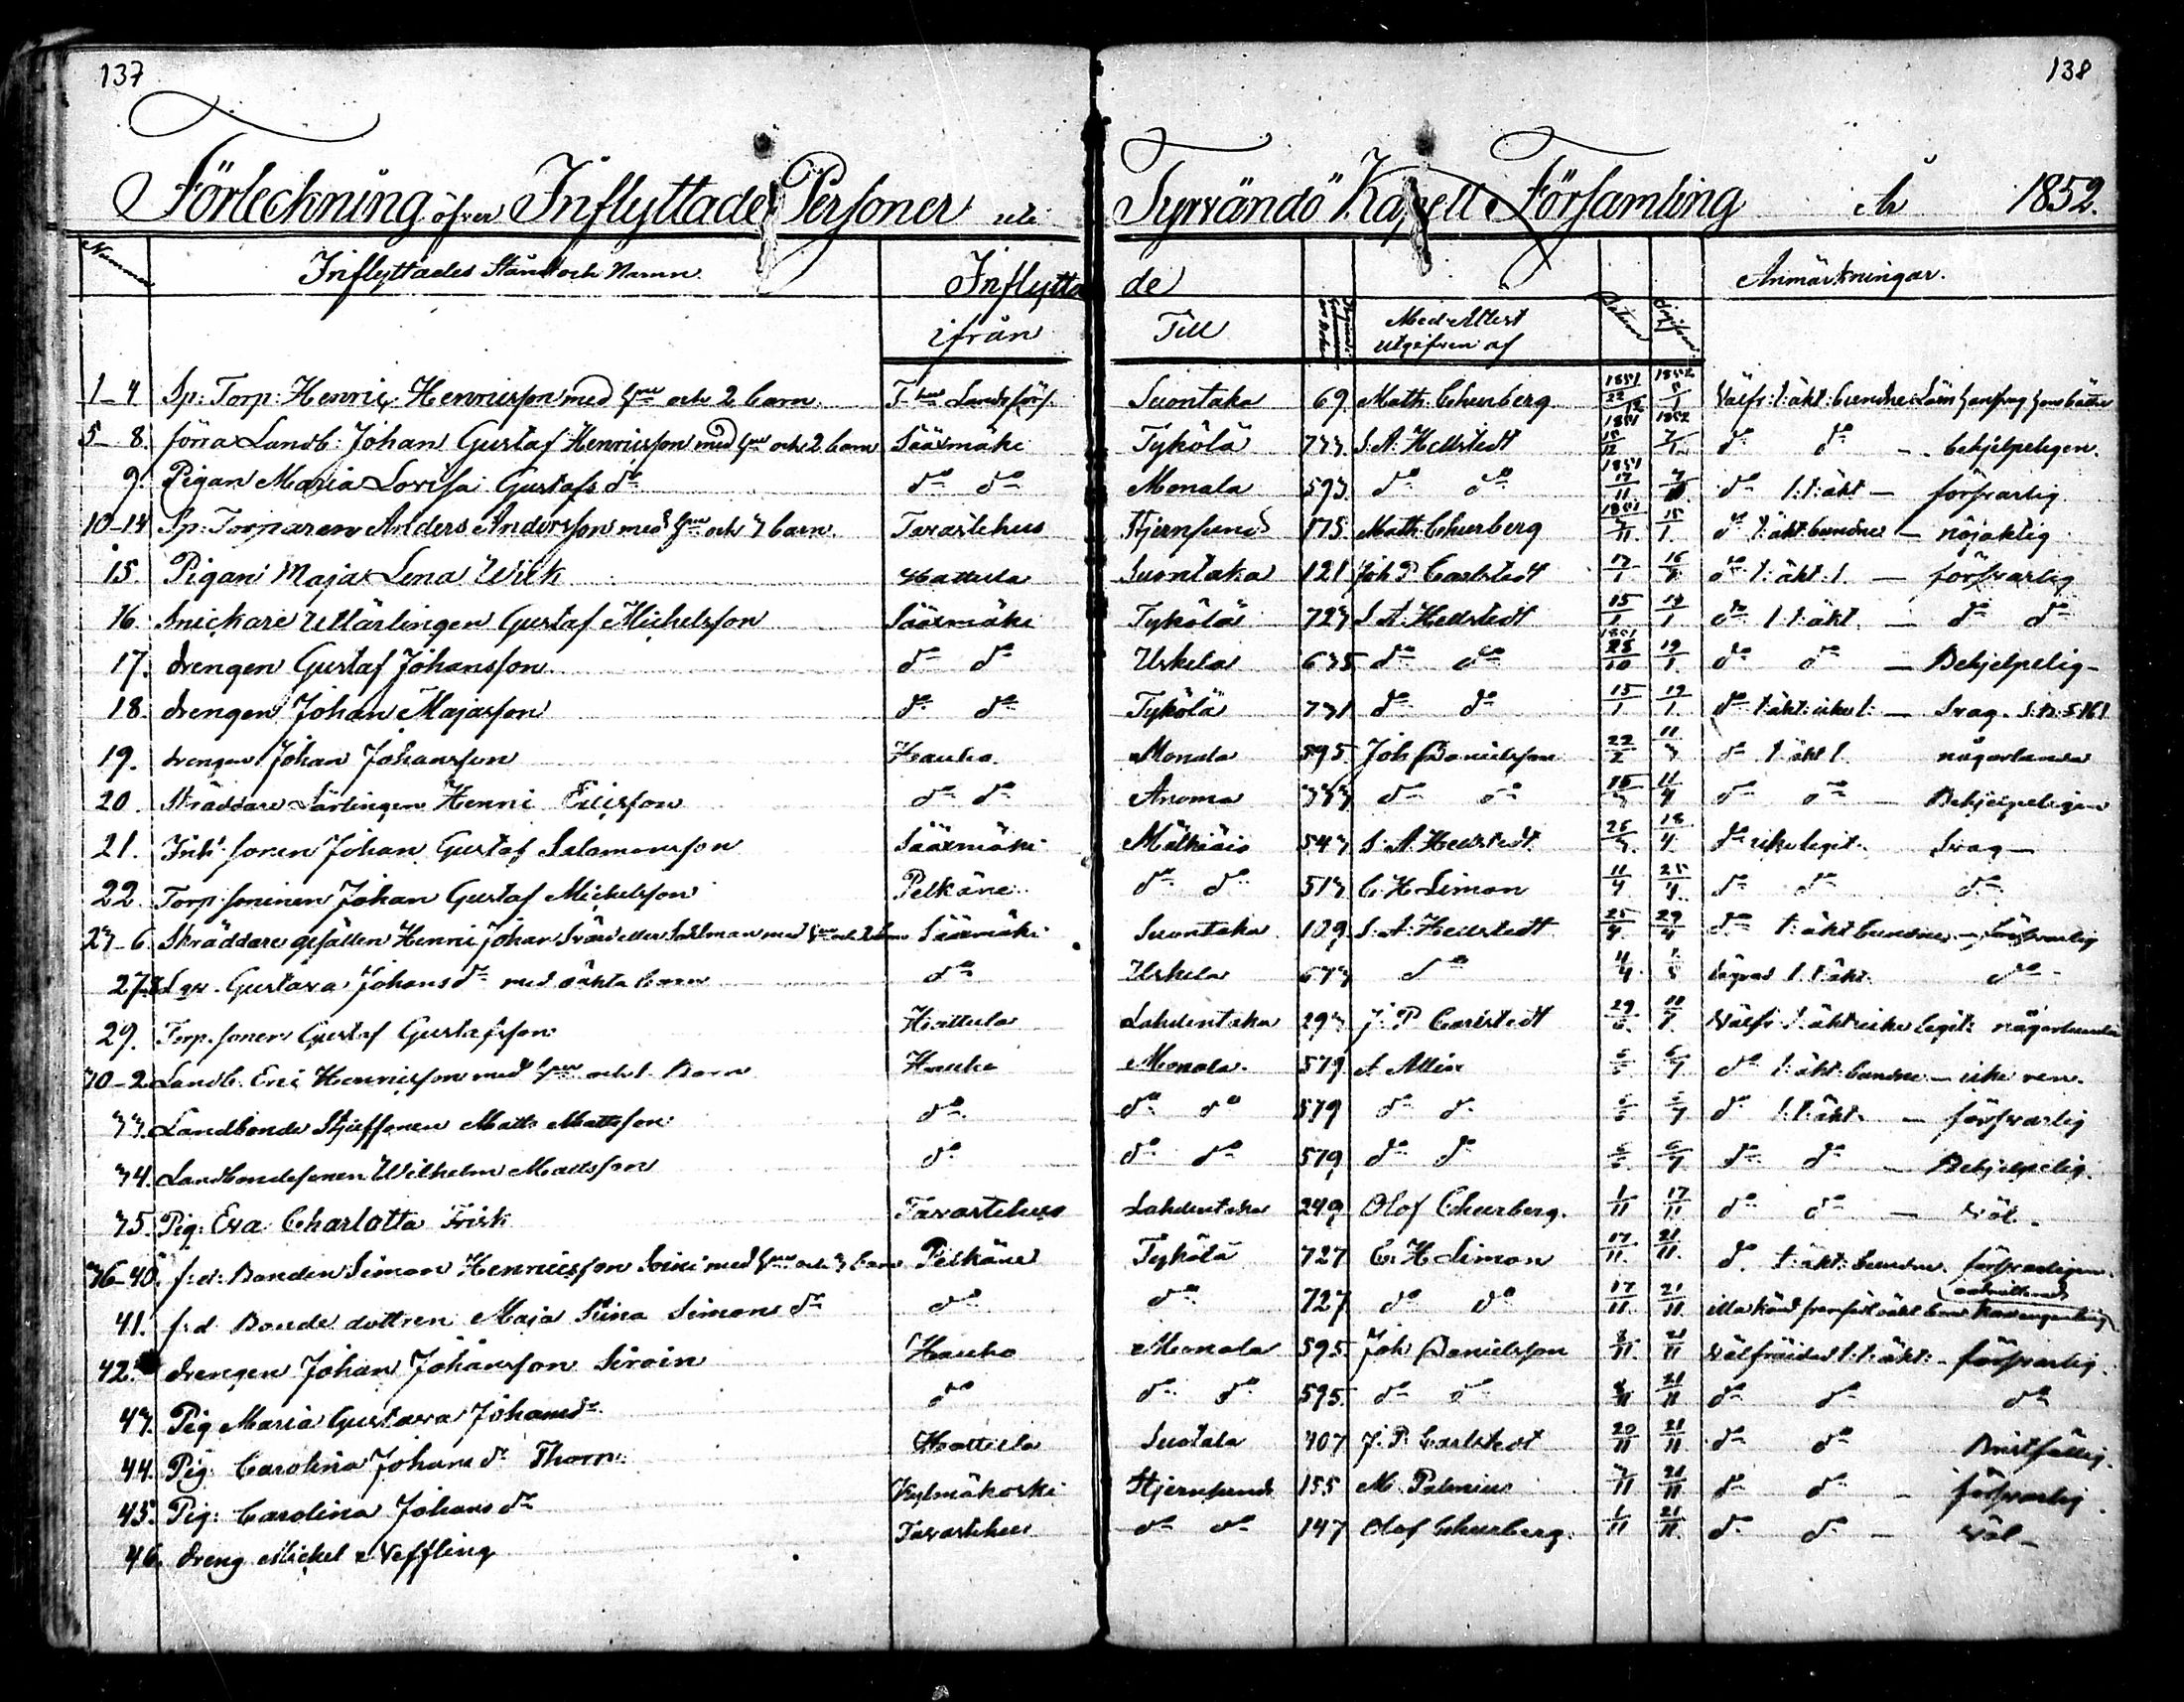 137 138
Förteckning öfver Inflyttade Personer uti Tyrvändö Kapell Församling År 1852.
Nummer Inflyttades Stånd och Namn Inflyttade Anmärkningar.
ifrån Till Med Attest utgifven af Datum
1-4 Sp: Torp: Henric Henricsson med hu och 2 barn Suontaka 69 Math: Churberg 1851 22/12 1852 5/1
5-8. förra Landb: Johan Gustaf Henricsson med hu och 2 barn Sääxmäki Tykölä 733 S. A. Hellstedt 1851 1852 do do — behjelpeligen.
9. Pigan Maria Lovisa Gustafs dr do do Monala 593 do do 1851 17/11 do l: t: äkt — försvarlig
10-14 Sp: Torparen Anders Andersson med hu och 3 barn. Tavastehus Stjernsund 175 Math: Churberg 1851 15/1. do t: äkt: bunden — nöjaktig
15. Pigan Maja Lena Wirk Hattula Suontaka 121 Joh P. Carlstedt do t: äkt: — försvarlig
16. Snickare Lärlingen Gustaf Michelsson Sääxmäki Tykölä 723 S. A. Hellstedt 15/1 do l: t: äkt — do do
17. drengen Gustaf Johansson do do Uskela 635 do do 1851 28/10 19/1 do do — Behjelpelig —
18. drengen Johan Majasson do do Tykölä 731 do do 15/1 19/1. do t: äkt: icke l: — Svag.
19. drengen Johan Johansson Hauho. Monala 595. Joh Danielsson 22/2 11/3 do t: äkt l. någorlunda
20. Skräddare Lärlingen Henric Ericsson do do Anoma 333 do do do do — Behjelpeligen
21. Inh: sonen Johan Gustaf Salomonsson Sääxmäki Mälkiäis 543 S. A. Hellstedt 26/3. 18/4. do icke legit. Svag —
22. Torp sonen Johan Gustaf Mickelsson Pelkäne do do 513 C. H. Limon 11/4 25/4 do do do
23-6. Skräddare gesällen Henric Johan Svärd eller Sahlman med hu och 2 barn Sääxmäki Suontaka 109 S. A. Hellstedt 25/4 29/4 do t: äkt bunden — försvarlig
27-8 Gustava Johans dr med oäkta barn do Uskela 673 do do
29. Torp. sonen Gustaf Gustafsson Hattula Lahdentaka 293 J. P. Carlstedt Välfr: t: äkt: icke legit: någorlunda
30-2 Landb. Eric Henricsson med hu och 1 Barn Hauho Monala. 579 A Allén do t: äkt: bunden — icke ren.
33. Landbonde Styfsonen Matts Mattsson do do do 579 do do do l: t: äkt — försvarlig
34. Landbondesonen Wilhelm Mattsson do do do 579 do do do do — Behjelpelig.
35. Pig: Eva Charlotta Frisk Tavastehus Lahdentaka 249 Olof Churberg. 1/11 17/11 do do — väl.
36-40. f: d: Bonden Simon Henricsson Soini med hu och 3 barn Pelkäne Tykölä 727 C. H. Limon 17/11. 21/11. do. t: äkt: bunden. försvarligen.
41. f: d Bonde dottren Maja Stina Simons dr do do 727 do do 17/11. 21/11.
42. drengen Johan Johansson Siroin Hauho Monala 595. Joh Danielsson 8/11. 21/11 Välfräjdad l: t: äkt: — försvarlig.
43. Pig Maria Gustava Johans dr do do do 595. do do 8/11 21/11 do do do
44. Pig: Carolina Johans dr Thorn Hattula Suotala 407 J. P. Carlstedt 20/11 21/11 do do Bristfällig.
45. Pig: Carolina Johans dr Kylmäkoski Stjernsund 155 M. Palenius 21/11 do do — försvarlig.
46. dreng Mickel Neffling Tavastehus do do 147 Olof Churberg. 1/11 21/11. do do — väl —